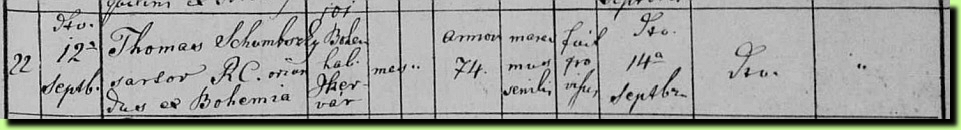 22
Dto.
12ª
Septb.
Thomas
sartor R.C. oriun
dus ex Bohemia
hal.
vár
mas.
annor
74.
maras
mus
senilis
fuit
pro
visus
Dto.
14ª
Septbr
Dto.
"